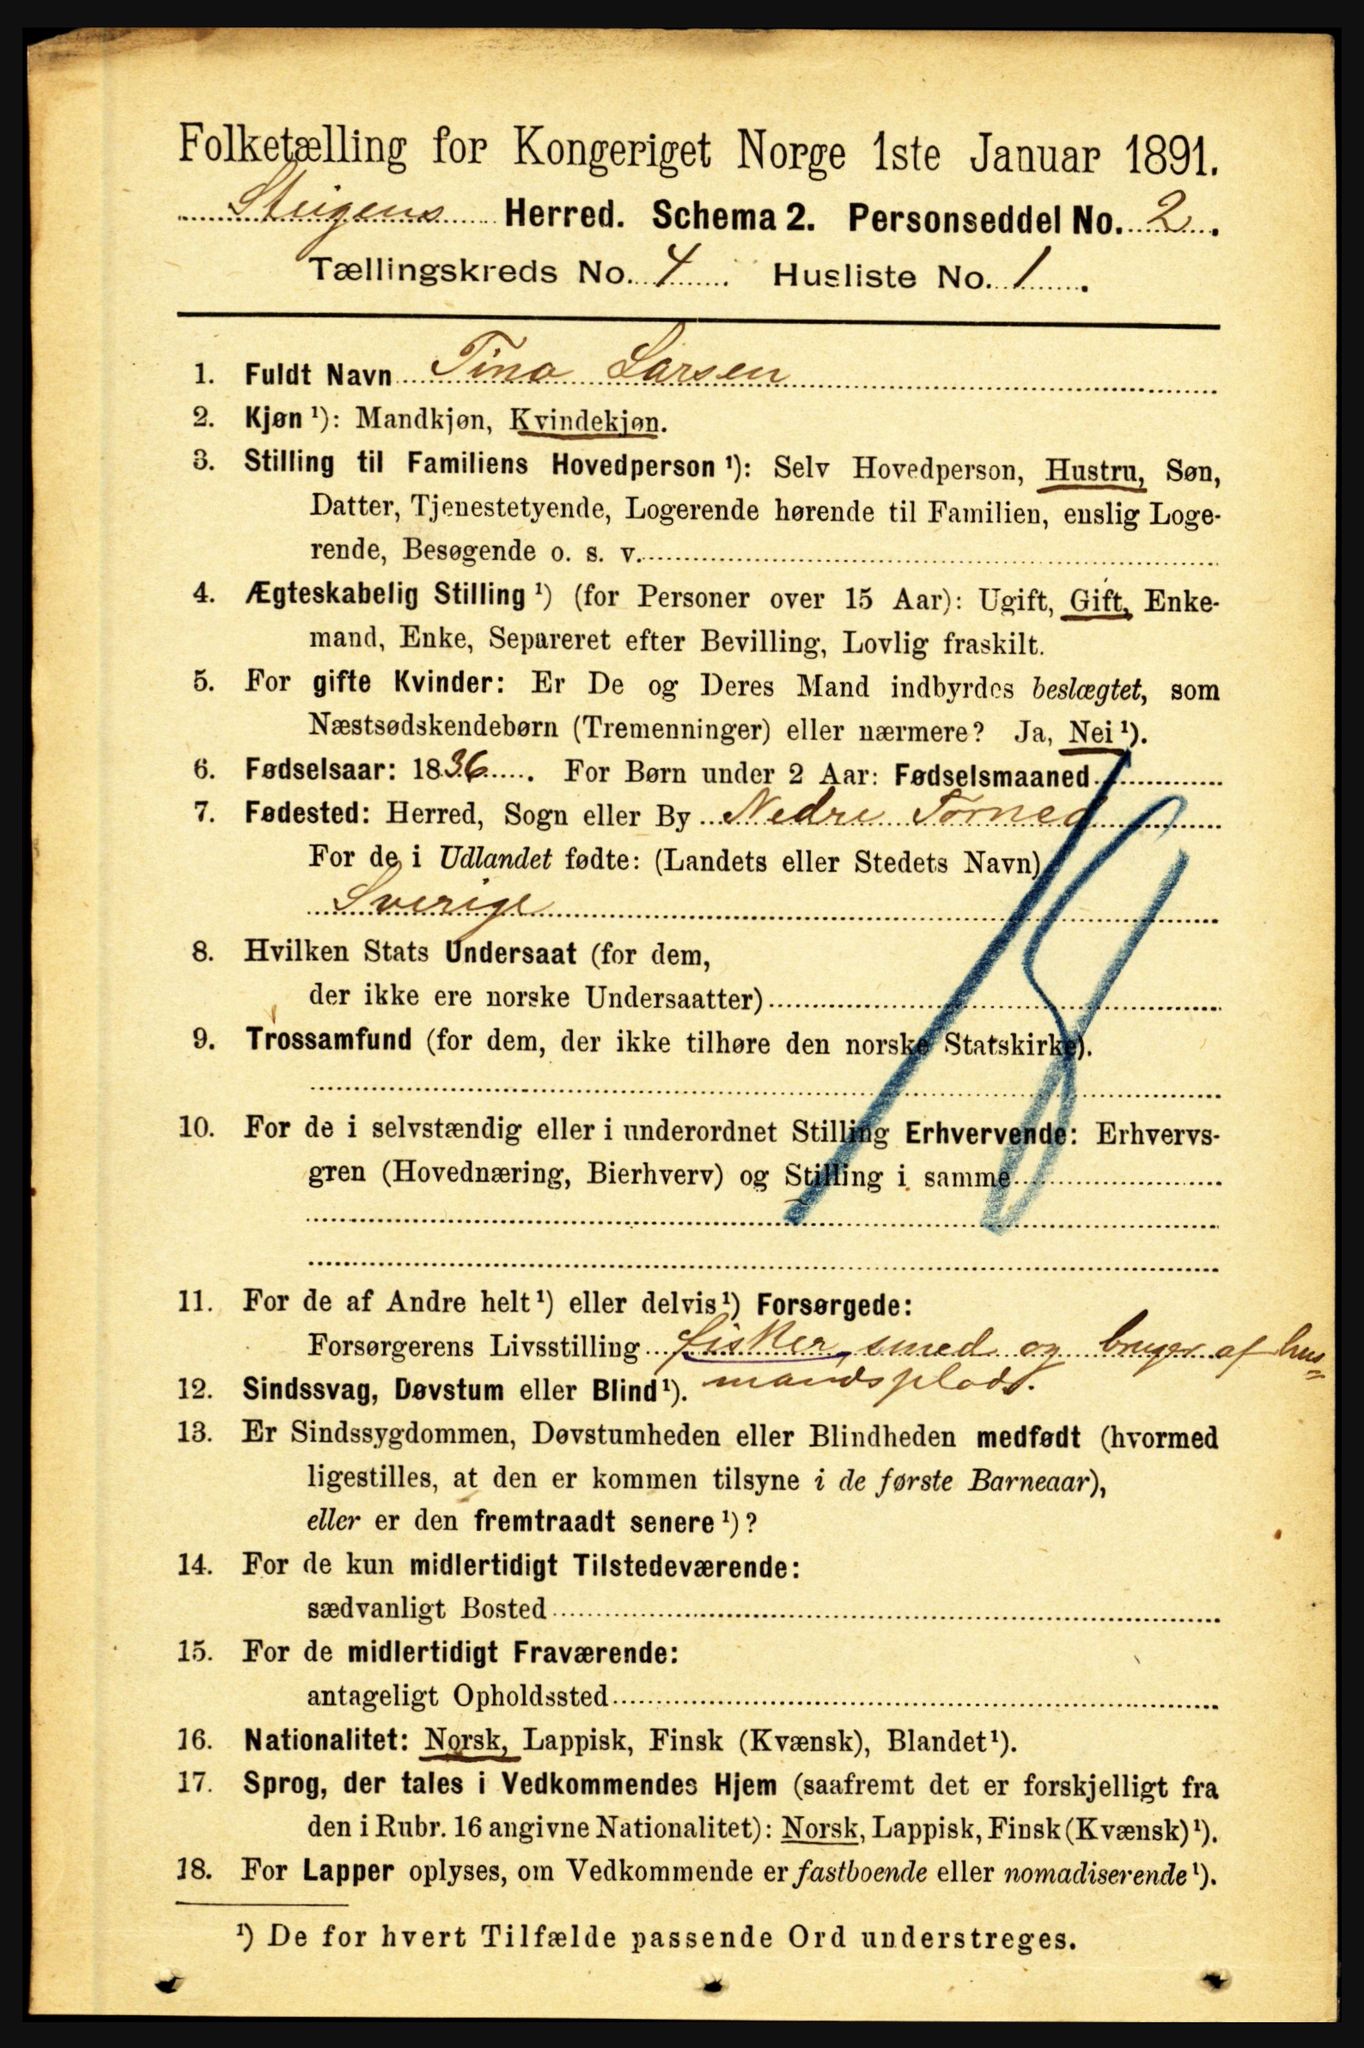 Folketælling for Kongeriget Norge 1ste Januar 1891.
Steigens Herred. Schema 2. Personseddel No. 2.
Tællingskreds No. 4. Husliste No. 1.
1. Fuldt Navn Tina Larsen
2. Kjøn ¹): Mandkjøn, Kvindekjøn.
3. Stilling til Familiens Hovedperson ¹): Selv Hovedperson, Hustru, Søn,
Datter, Tjenestetyende, Logerende hørende til Familien, enslig Loge-
rende, Besøgende o. s. v.
4. Ægteskabelig Stilling ¹) (for Personer over 15 Aar): Ugift, Gift, Enke-
mand, Enke, Separeret efter Bevilling, Lovlig fraskilt.
5. For gifte Kvinder: Er De og Deres Mand indbyrdes beslægtet, som
Næstsødskendebørn (Tremenninger) eller nærmere? Ja, Nei ¹).
6. Fødselsaar: 1836. For Børn under 2 Aar: Fødselsmaaned
7. Fødested: Herred, Sogn eller By Nedre Torneå
For de i Udlandet fødte: (Landets eller Stedets Navn)
Sverige
8. Hvilken Stats Undersaat (for dem,
der ikke ere norske Undersaatter)
9. Trossamfund (for dem, der ikke tilhøre den norske Statskirke).
10. For de i selvstændig eller i underordnet Stilling Erhvervende: Erhvervs-
gren (Hovednæring, Bierhverv) og Stilling i samme
11. For de af Andre helt ¹) eller delvis ¹) Forsørgede:
Forsørgerens Livsstilling fisker, smed og bruger af hus=
mandsplads.
12. Sindssvag, Døvstum eller Blind ¹).
13. Er Sindssygdommen, Døvstumheden eller Blindheden medfødt (hvormed
ligestilles, at den er kommen tilsyne i de første Barneaar),
eller er den fremtraadt senere ¹)?
14. For de kun midlertidigt Tilstedeværende:
sædvanligt Bosted
15. For de midlertidigt Fraværende:
antageligt Opholdssted
16. Nationalitet: Norsk, Lappisk, Finsk (Kvænsk), Blandet ¹).
17. Sprog, der tales i Vedkommendes Hjem (saafremt det er forskjelligt fra
den i Rubr. 16 angivne Nationalitet): Norsk, Lappisk, Finsk (Kvænsk) ¹).
18. For Lapper oplyses, om Vedkommende er fastboende eller nomadiserende ¹).
¹) De for hvert Tilfælde passende Ord understreges.